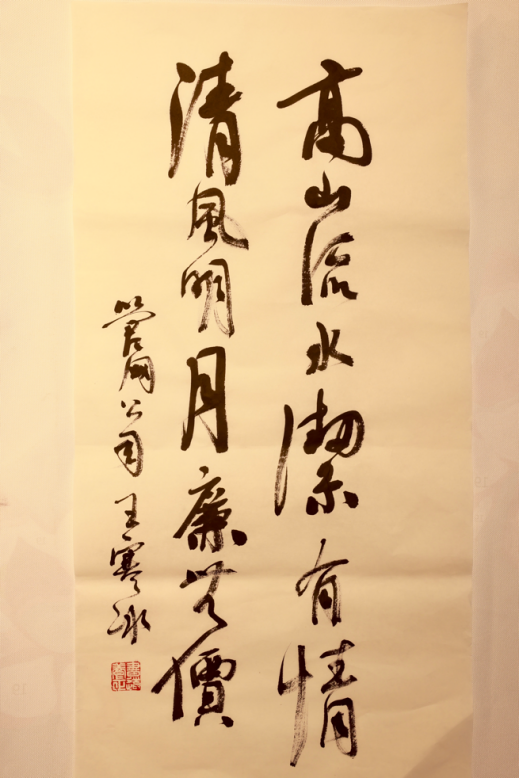 高山流水潔有情
清風明月廉無價
公司 王寒冰